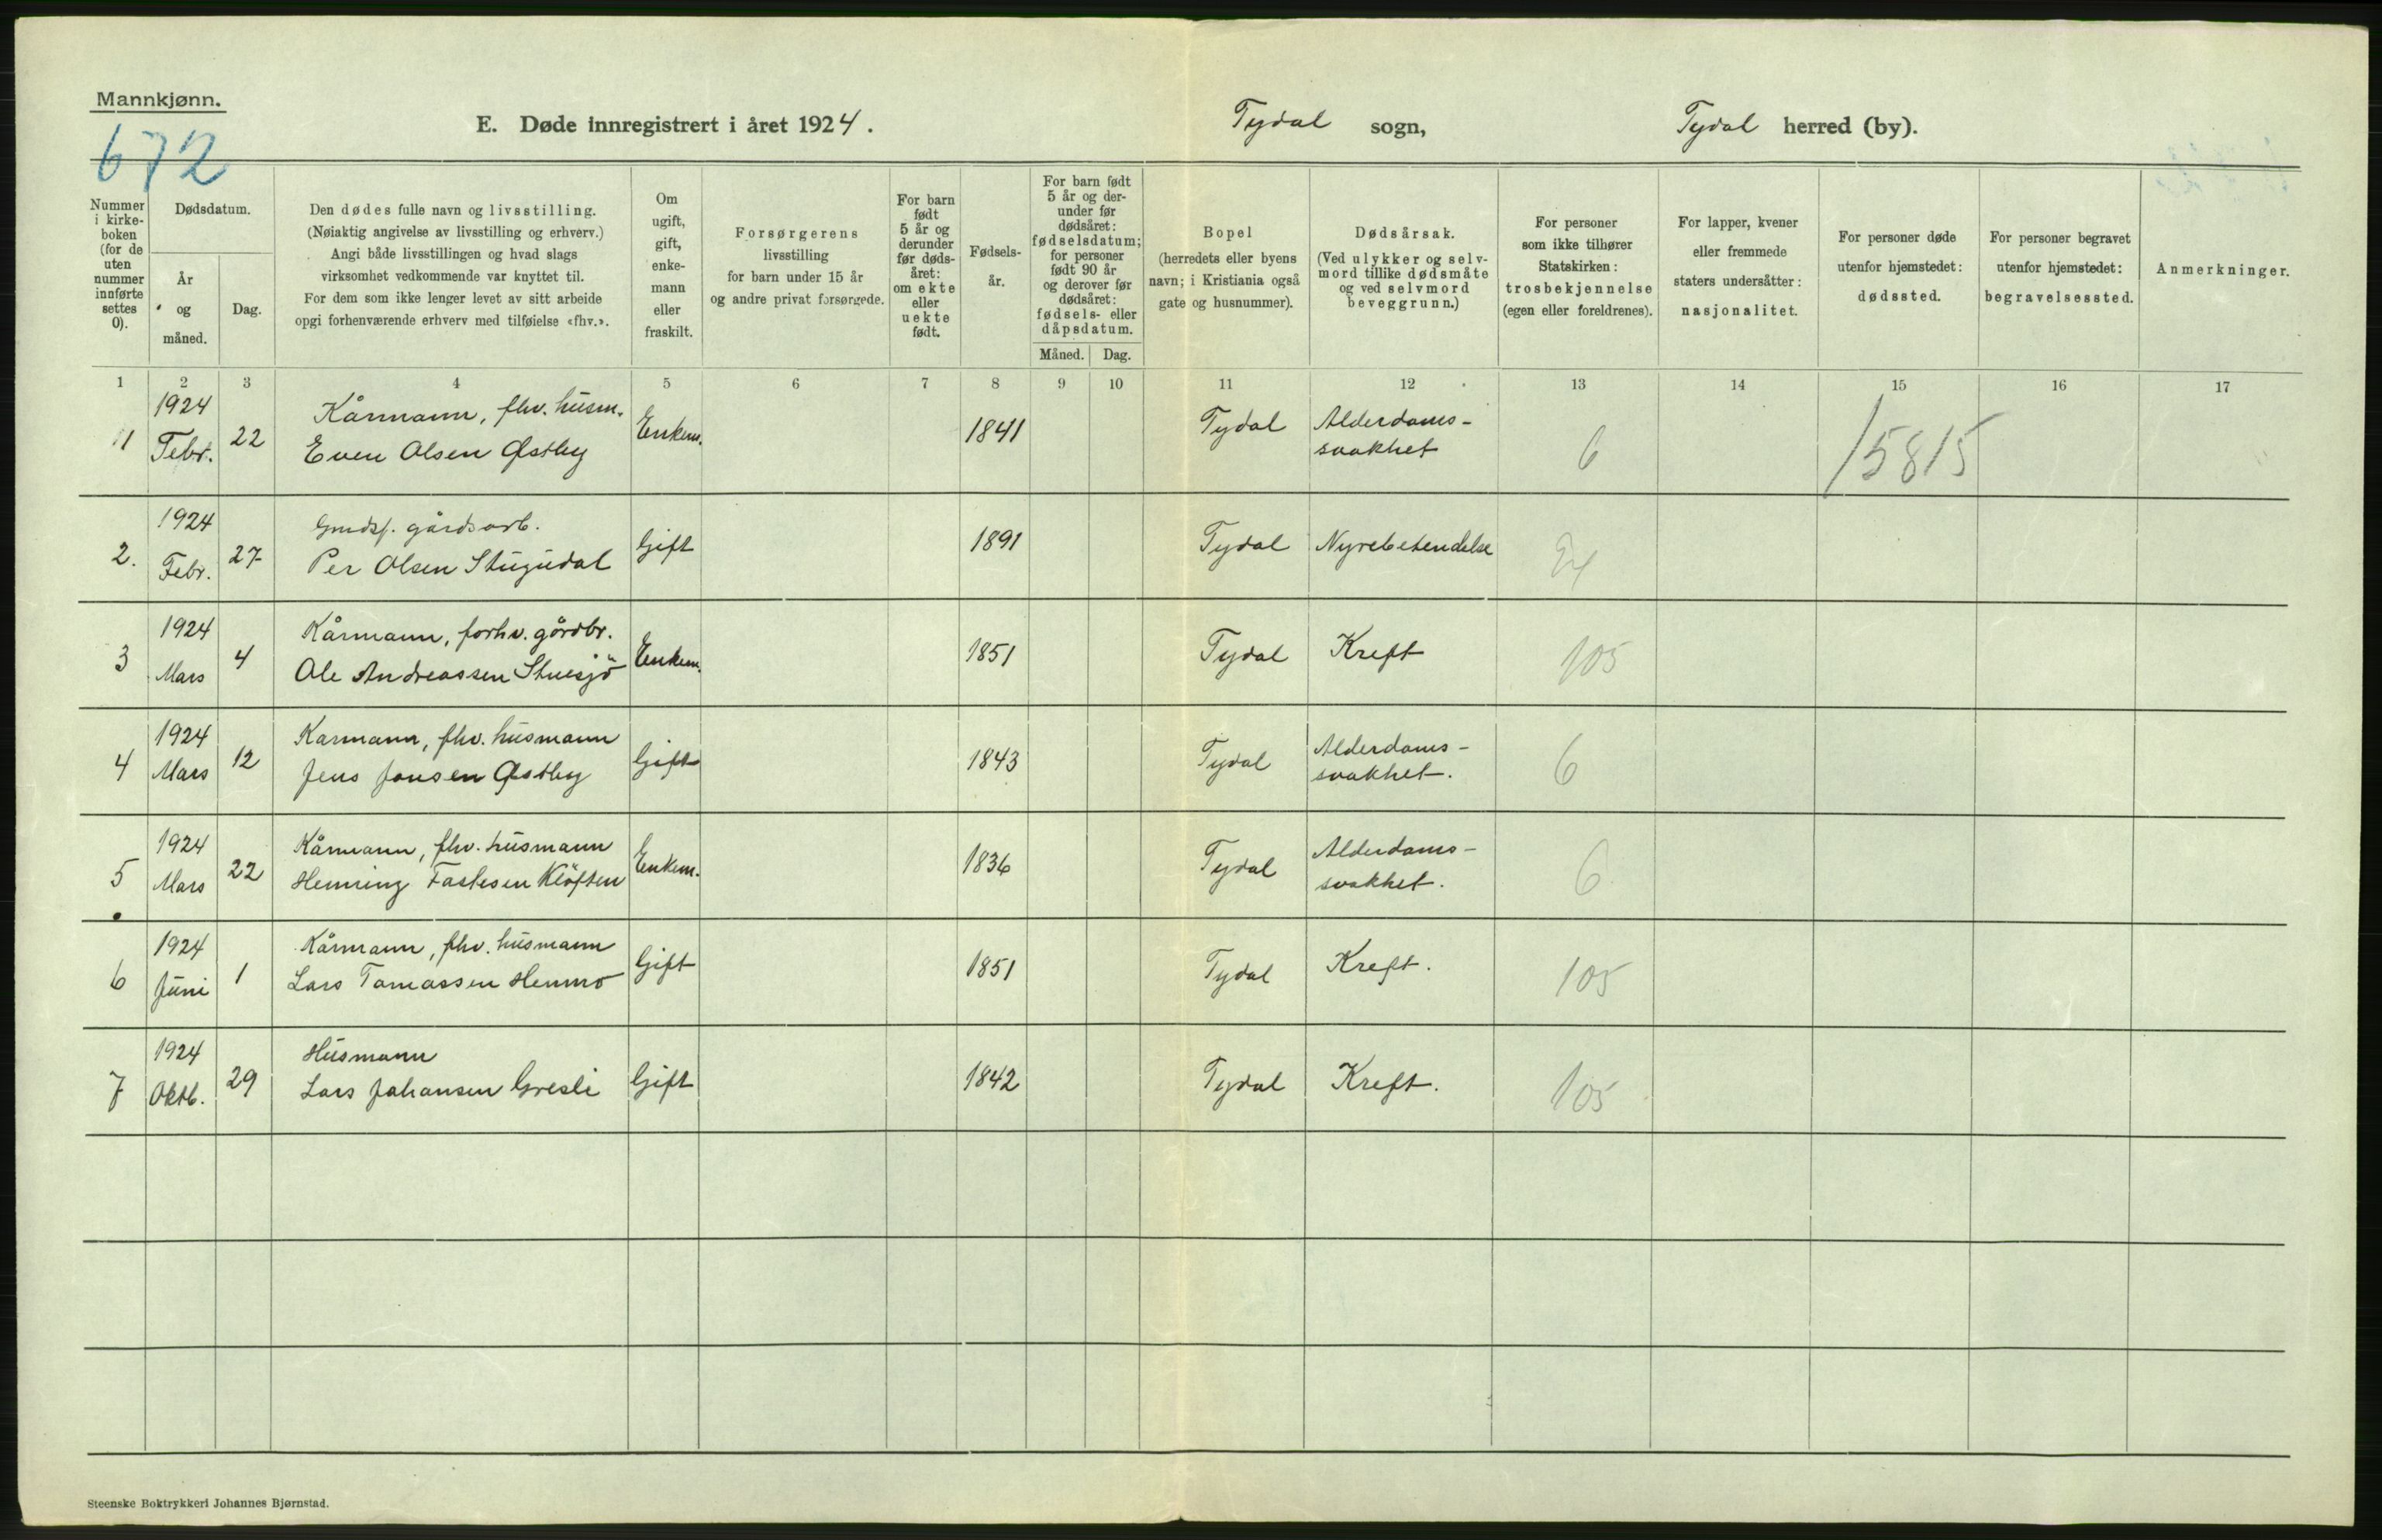 Mannkjønn.
672
E. Døde innregistrert i året 1924.
Tydal sogn,
Tydal herred (by).
Nummer
i kirke-
boken
(for de
uten
nummer
innførte
settes
0).
Dødsdatum.
År
og
måned.
Dag.
Den dødes fulle navn og livsstilling.
(Nøiaktig angivelse av livsstilling og erhverv.)
Angi både livsstillingen og hvad slags
virksomhet vedkommende var knyttet til.
For dem som ikke lenger levet av sitt arbeide
opgi forhenværende erhverv med tilføielse «fhv.».
Om
ugift,
gift,
enke-
mann
eller
fraskilt.
Forsørgerens
livsstilling
for barn under 15 år
og andre privat forsørgede.
For barn
født
5 år og
derunder
før døds-
året:
om ekte
eller
uekte
født.
Fødsels-
år.
For barn født
5 år og der-
under før
dødsåret:
fødselsdatum;
for personer
født 90 år
og derover før
dødsåret:
fødsels- eller
dåpsdatum.
Måned.
Dag.
Bopel
(herredets eller byens
navn; i Kristiania også
gate og husnummer).
Dødsårsak.
(Ved ulykker og selv-
mord tillike dødsmåte
og ved selvmord
beveggrunn.)
For personer
som ikke tilhører
Statskirken:
trosbekjennelse
(egen eller foreldrenes).
For lapper, kvener
eller fremmede
staters undersåtter:
nasjonalitet.
For personer døde
utenfor hjemstedet:
dødssted.
For personer begravet
utenfor hjemstedet:
begravelsessted.
Anmerkninger.
1 2 3 4 5 6 7 8 9 10 11 12 13 14 15 16 17
1924 Kårmann, fhv. husm. Alderdoms-
1 Febr. 22 Even Olsen Østby Enkem. 1841 Tydal svakhet 6 15815
1924 gårdsarb.
2. Febr. 27 Per Olsen Stugudal Gift 1891 Tydal Nyrebetendelse
1924 Kårmann, forhv. gårdbr.
3 Mars 4 Ole Andreassen Stuesjö Enkem. 1851 Tydal Kreft 105
1924 Karmann, fhv. husmann Alderdoms-
4 Mars 12 Jens Jonsen Østby Gift 1843 Tydal svakhet. 6
1924 Kårmann, fhv. husmann Alderdoms-
5 Mars 22 Henning Fastesen Klöften Enkem. 1836 Tydal svakhet. 6
1924 Kårmann, fhv. husmann
6 Juni 1 Lars Tomassen Henmo Gift 1851 Tydal Kreft. 105
1924 Husmann
7 Oktb. 29 Lars Johansen Gresli Gift 1842 Tydal Kreft. 105
Steenske Boktrykkeri Johannes Bjørnstad.